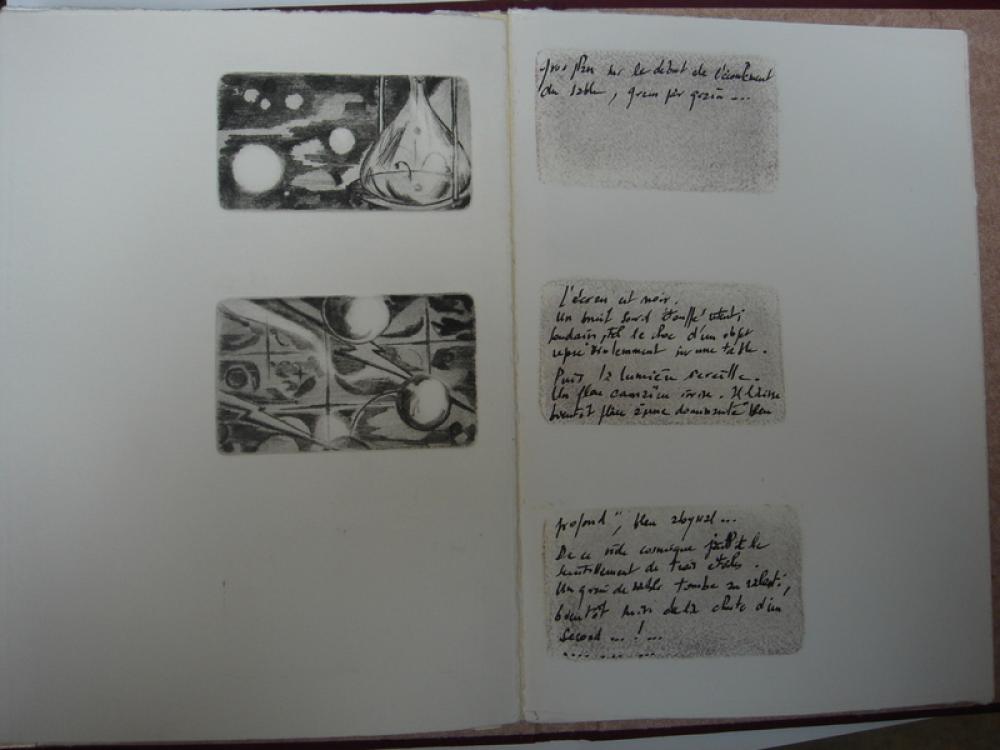 gros plan sur le début de l'écoulement
du sable, grain par grain ...
L'écran est noir.
Un bruit sourd étouffé retenti,
soudain, tel le choc d'un objet
reposé violemment sur une table.
Puis la lumière
Un flou carmin irise. Il laisse
bientôt place à une dominante bleu
profond", bleu abyssal ...
De ce vide cosmique jaillit le
scintillement de trois étoiles.
Un grain de sable tombe au ralenti,
bientôt suivi de la chute d'un
second ... ! ...